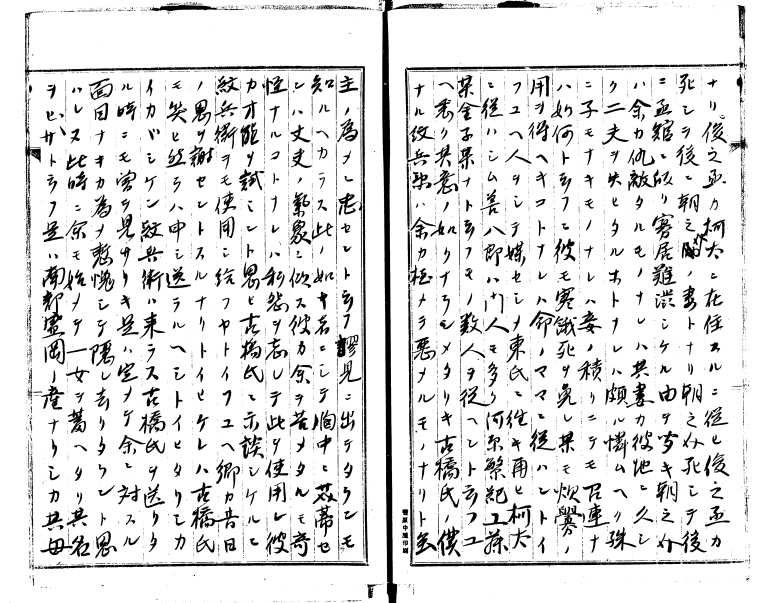 ナリ俊之丞カ柯太ニ在住スルニ從ヒ俊之丞カ
死シテ後ニ朝之外ノ妻トナリ朝之外死シテ後
ニ函館ニ皈リ寡居難渋シケル由ヲ聞キ朝之外
ハ余カ仇敵タルモノナレハ其妻カ彼地ニ久シ
ク二夫ヲ失ヒタルホトナレハ頗ル憐ムヘク殊
ニ子モナキモノナレハ妾ノ積リニテモ召連ナ
ハ如何ト云フニ彼モ寒餓死ヲ免レ果モ炊爨ノ
用ヲ得ヘキコトナレハ命ノママニ從ハントイ
フユヘ人ヲシテ媒セシメ東氏ニ住キ再ヒ柯太
ニ從ハシム善八郎ハ門人モ多ク河原繁紀工藤
某金子某ナト云フモノ数人ヲ從ヘント云フユ
ヘ悉ク其意ノ如クナラシメタリキ古橋氏ノ僕
ナル紋兵衛ハ余カ極メテ悪メルモノナリト
主ノ為メニ忠セント云フ謬見ニ出テタランモ
知ルヘカラス此ノ如キ者ニシテ胸中ニ芥蔕セ
シハ丈夫ノ氣象ニ似ス彼カ余ヲ苦メタルモ奇
怪ナルコトナレハ私怨ヲ忘レテ此ヲ使用シ彼
カ才能ヲ試ミント思ヒ古橋氏ニ示談シケルニ
紋兵衛ヲモ使用シ給フヤトイフユヘ卿カ昔日
ノ恩ヲ謝セントスルナリトイヒケレハ古橋氏
モ笑ヒ然ラハ申シ送ラルヘシトイヒタリシカ
イカヾシケン紋兵衛ハ来ラス古橋氏ヲ送リタ
ル時ニモ害ヲ見サリキ是ハ定メテ余ニ対スル
面目ナキカ為メ慙愧シテ隠レ去リタラント思
ハレヌ此時ニ余モ始メテ一女ヲ蓄ヘタリ其名
ヲヒサト云フ是ハ南部盛岡ノ産ナリシカ其母